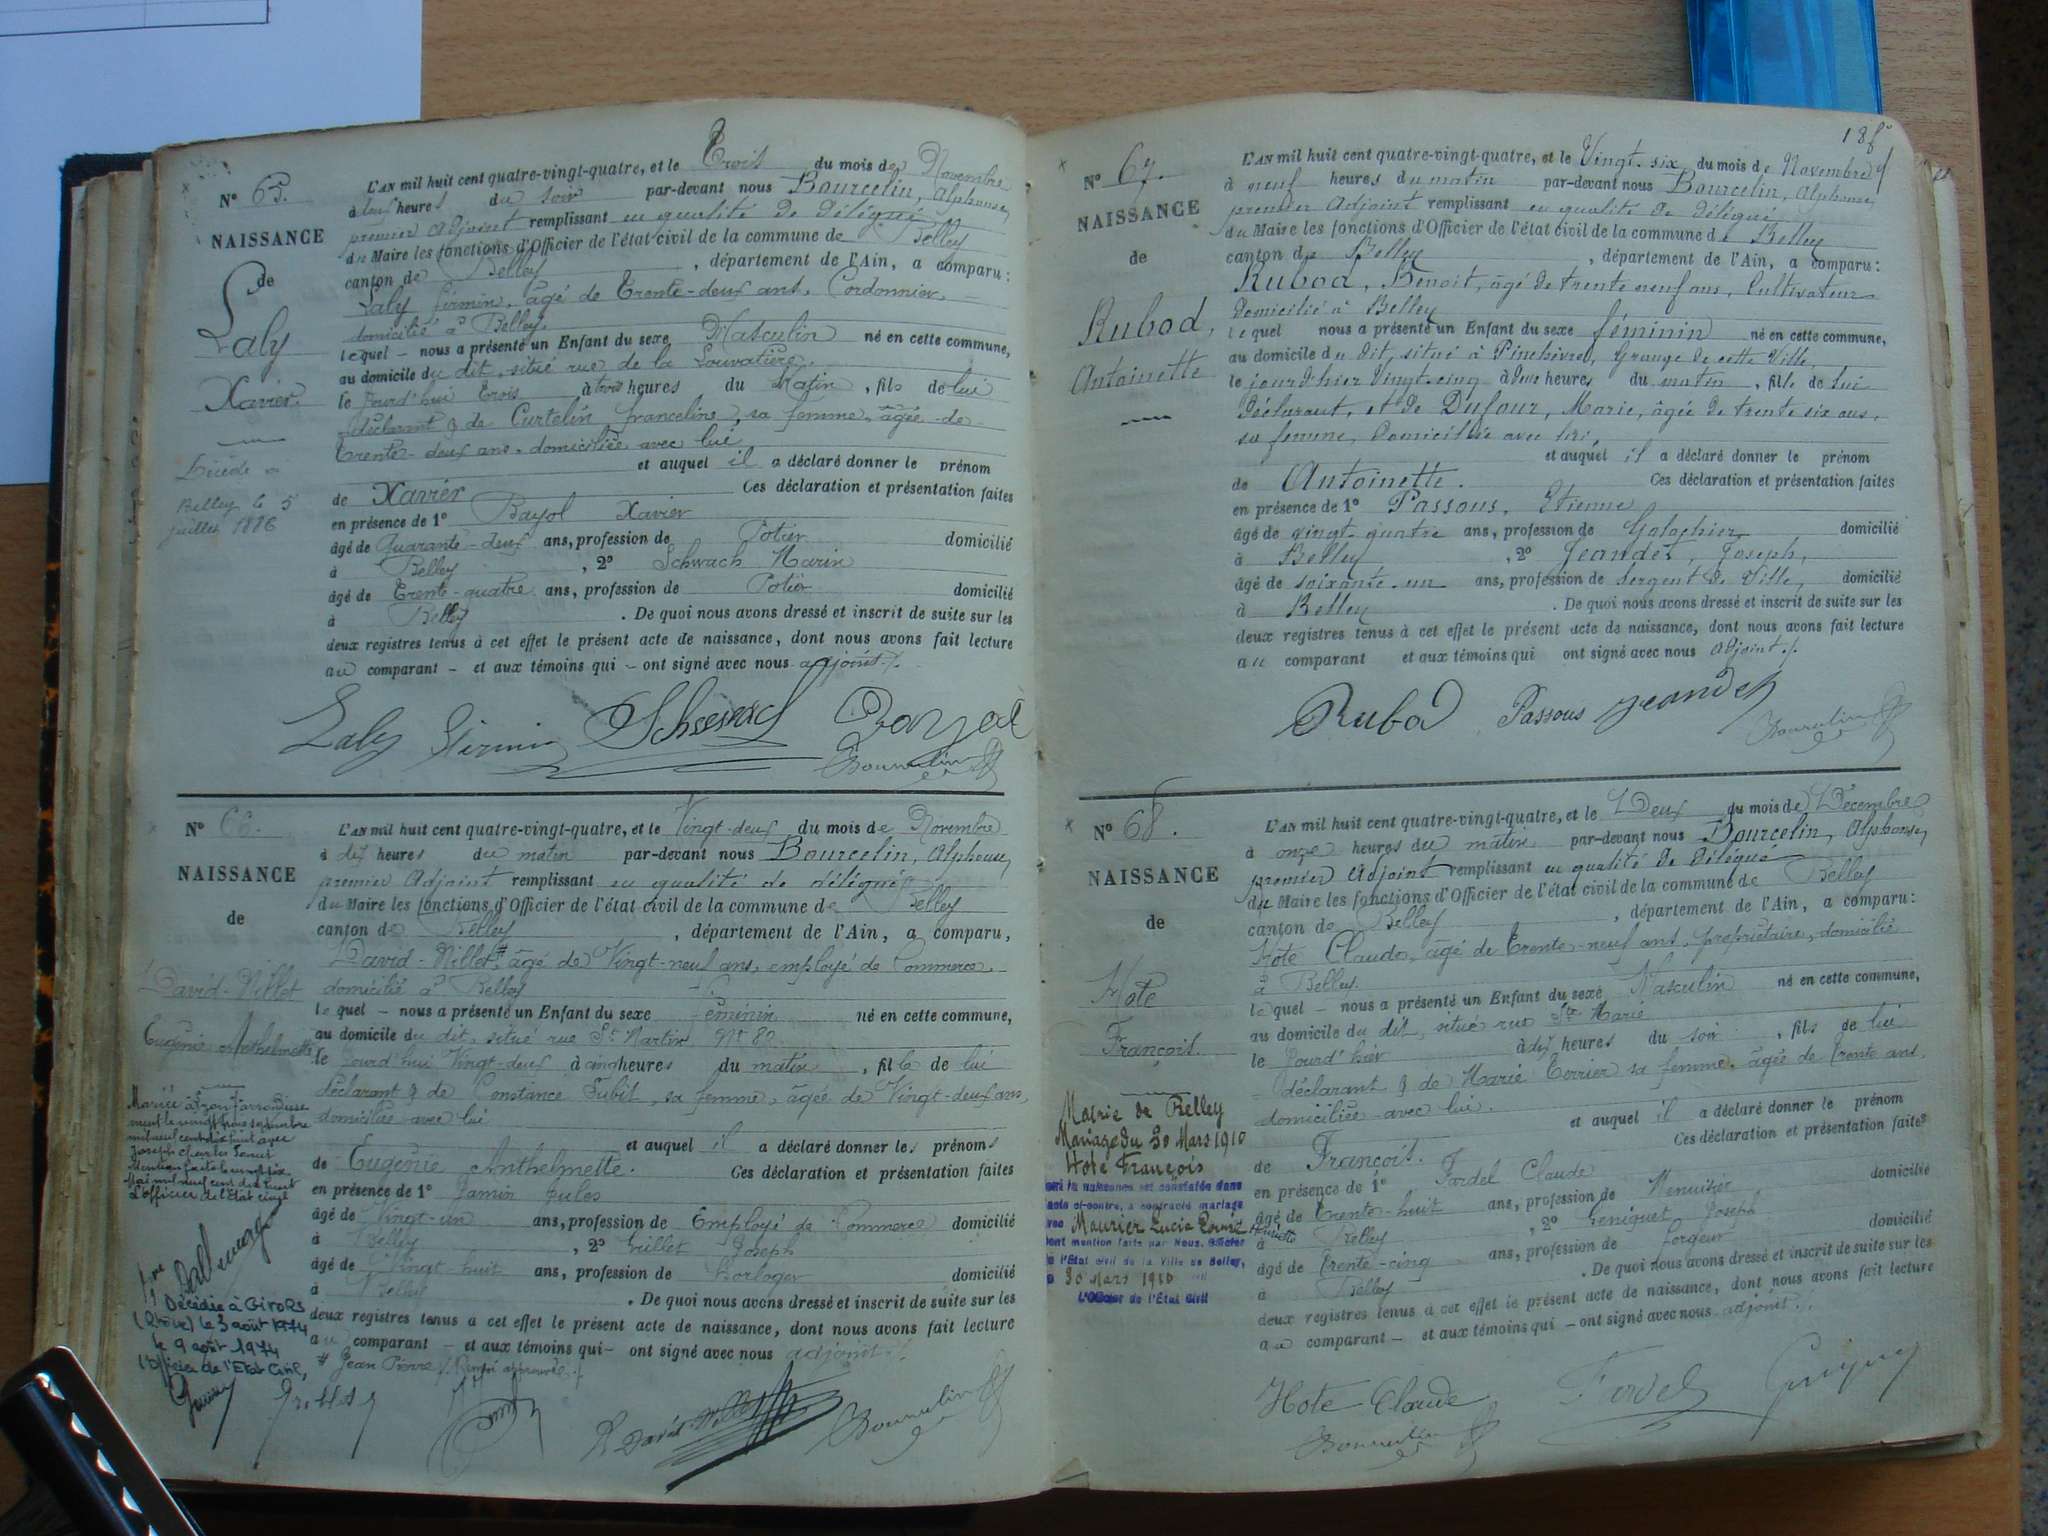 N° 65.
NAISSANCE
de
Laly
Xavier.
Décédé à
Belley le 5
juillet 1886
L'AN mil huit cent quatre-vingt-quatre, et le Trois du mois de Novembre
à deux heures du soir par-devant nous Bourcelin, Alphonse,
premier Adjoint remplissant en qualité de délégué
du Maire les fonctions d'Officier de l'état civil de la commune de Belley
canton de Belley, département de l'Ain, a comparu:
Laly Firmin, âgé de Trente-deux ans, Cordonnier,
domicilié à Belley,
lequel - nous a présenté un Enfant du sexe Masculin né en cette commune,
au domicile du dit, situé rue de la Louvatière.
le jourd'hui trois, à trois heures du Matin, fils de lui
déclarant & de Curtelin Franceline, sa femme, âgée de
Trente-deux ans, domiciliée avec lui
et auquel il a déclaré donner le prénom
de Xavier Ces déclaration et présentation faites
en présence de 1° Bayol Xavier
âgé de Quarante-deux ans, profession de Potier domicilié
à Belley, 2° Schwach Marin
âgé de Trente-quatre ans, profession de Potier domicilié
à Belley. De quoi nous avons dressé et inscrit de suite sur les
deux registres tenus à cet effet le présent acte de naissance, dont nous avons fait lecture
au comparant - et aux témoins qui - ont signé avec nous adjoint./.
Laly Firmin Schwach Bayol
Bourcelin
N° 66.
NAISSANCE
de
David-Nillet
Eugénie Anthelmette
Mariée à Lyon 1er arrondisse
ment le vingt trois septembre
mil neuf cent dix huit avec
Joseph Charles
Mention faite le vingt six
Mai mil neuf cent dix huit
L'officier de l'Etat civil
Décédée à GIVORS
(Rhône) le 3 août 1974
le 9 août 1974
l'Officier de l'Etat Civil,
L'AN mil huit cent quatre-vingt-quatre, et le Vingt-deux du mois de Novembre
à dix heures du matin par-devant nous Bourcelin, Alphonse,
premier Adjoint remplissant en qualité de délégué
du Maire les fonctions d'Officier de l'état civil de la commune de Belley
canton de Belley, département de l'Ain, a comparu,
David-Nillet,# âgé de Vingt-neuf ans, employé de Commerce,
domicilié à Belley
lequel - nous a présenté un Enfant du sexe Féminin né en cette commune,
au domicile du dit, situé rue St Martin N° 82
le jourd'hui Vingt-deux à cinq heures du matin, fille de lui
déclarant & de Constance Subit, sa femme, âgée de Vingt-deux ans,
domiciliée avec lui
et auquel il a déclaré donner les prénoms
de Eugénie Anthelmette. Ces déclaration et présentation faites
en présence de 1° Jamin Jules
âgé de Vingt-un ans, profession de Employé de Commerce domicilié
à Belley, 2° Joseph
âgé de Vingt-huit ans, profession de Horloger domicilié
à Belley. De quoi nous avons dressé et inscrit de suite sur les
deux registres tenus à cet effet le présent acte de naissance, dont nous avons fait lecture
au comparant - et aux témoins qui - ont signé avec nous adjoint./.
# Jean Pierre / Renvoi approuvé./.
David Nillet Bourcelin
186
N° 67.
NAISSANCE
de
Rubod,
Antoinette
L'AN mil huit cent quatre-vingt-quatre, et le Vingt-six du mois de Novembre
à neuf heures du matin par-devant nous Bourcelin, Alphonse,
premier Adjoint remplissant en qualité de délégué
du Maire les fonctions d'Officier de l'état civil de la commune de Belley
canton de Belley, département de l'Ain, a comparu:
Rubod, Benoit, âgé de trente neuf ans, Cultivateur
domicilié à Belley
lequel nous a présenté un Enfant du sexe féminin né en cette commune,
au domicile du dit, situé à Grange de cette Ville,
le jour d'hier Vingt-cinq à deux heures du matin, fille de lui
déclarant, et de Dufour, Marie, âgée de trente six ans,
sa femme, domiciliée avec lui,
et auquel il a déclaré donner le prénom
de Antoinette. Ces déclaration et présentation faites
en présence de 1° Passous, Etienne
âgé de vingt-quatre ans, profession de Galochier domicilié
à Belley, 2° Jeandet, Joseph,
âgé de soixante-un ans, profession de Sergent de Ville, domicilié
à Belley. De quoi nous avons dressé et inscrit de suite sur les
deux registres tenus à cet effet le présent acte de naissance, dont nous avons fait lecture
au comparant et aux témoins qui ont signé avec nous Adjoint./.
Rubod Passous Jeandet
Bourcelin
N° 68.
NAISSANCE
de
Hote
François.
Mairie de Belley
Mariage du 30 Mars 1910
Hote François
dont la naissance est constatée dans
l'acte ci-contre, a contracté mariage
avec Maurier Lucie
dont mention faite par Nous, Officier
de l'Etat civil de la Ville de Belley,
le 30 Mars 1910
L'Officier de l'État Civil
L'AN mil huit cent quatre-vingt-quatre, et le Deux du mois de Décembre
à onze heures du matin par-devant nous Bourcelin, Alphonse,
premier Adjoint remplissant en qualité de délégué
du Maire les fonctions d'Officier de l'état civil de la commune de Belley
canton de Belley, département de l'Ain, a comparu:
Hote Claude, âgé de Trente-neuf ans, propriétaire, domicilié
à Belley.
lequel - nous a présenté un Enfant du sexe Masculin né en cette commune,
au domicile du dit, situé rue Ste Marie
le jourd'hier à dix heures du soir, fils de lui
déclarant & de Marie Terrier sa femme, âgée de trente ans,
domiciliée avec lui.
et auquel il a déclaré donner le prénom
de François. Ces déclaration et présentation faites
en présence de 1° Fardel Claude
âgé de Trente-huit ans, profession de Menuisier domicilié
à Belley, 2° Joseph
âgé de Trente-cinq ans, profession de Forgeur domicilié
à Belley. De quoi nous avons dressé et inscrit de suite sur les
deux registres tenus à cet effet le présent acte de naissance, dont nous avons fait lecture
au comparant - et aux témoins qui - ont signé avec nous adjoint./.
Hote Claude Fardel
Bourcelin